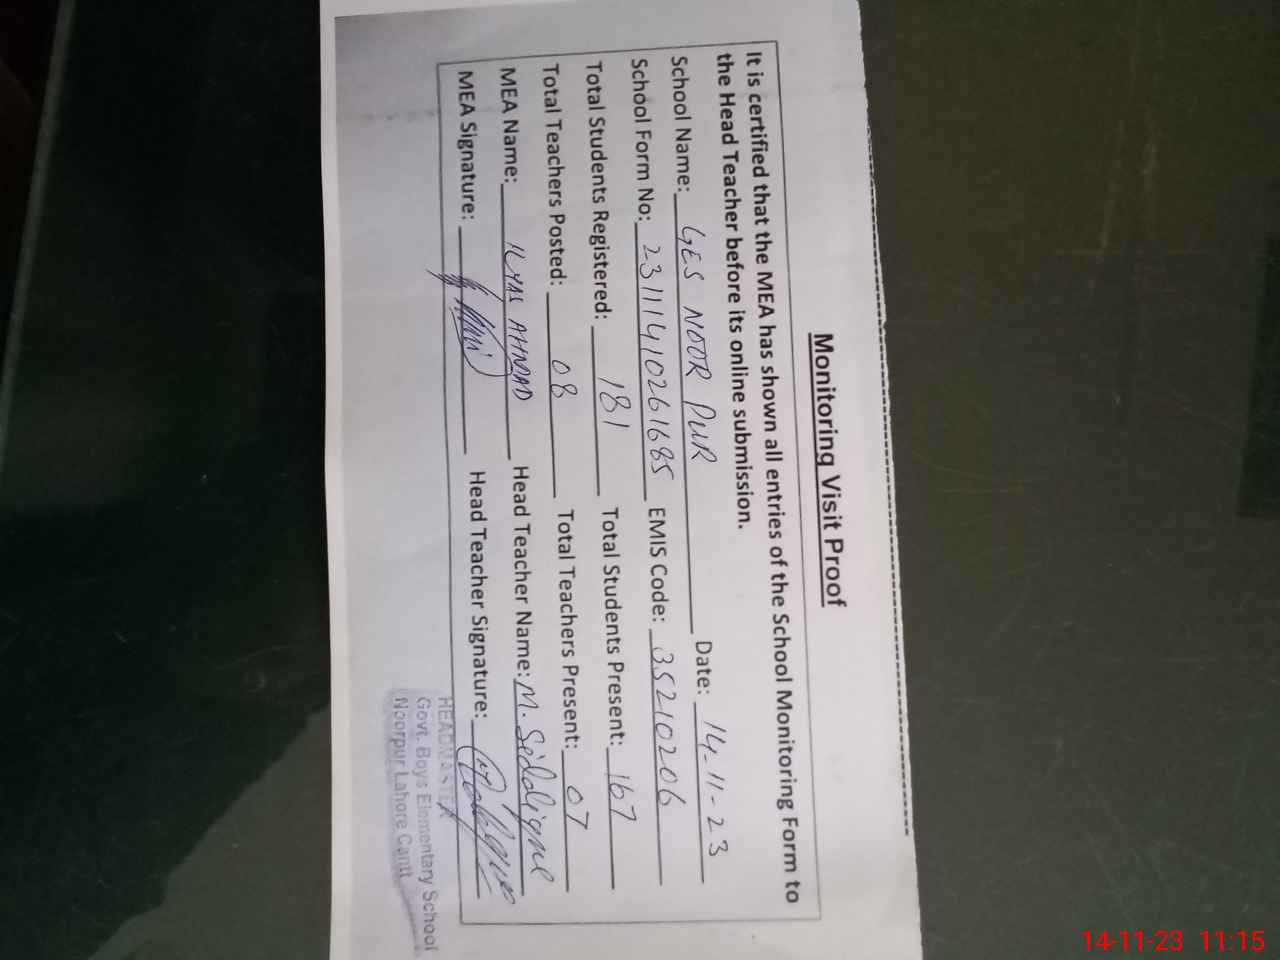 Monitoring Visit Proof
It is certified that the MEA has shown all entries of the School Monitoring Form to
the Head Teacher before its online submission.
School Name: GES NOOR PUR Date: 14-11-23
School Form No: 23111410261685 EMIS Code: 35210206
Total Students Registered: 181 Total Students Present: 167
Total Teachers Posted: 08 Total Teachers Present: 07
MEA Name: ILYAS AHMAD Head Teacher Name: M. Siddique
MEA Signature: Head Teacher Signature:
HEADMASTER
Govt. Boys Elementary School
Noorpur Lahore Cantt
14-11-23 11:15